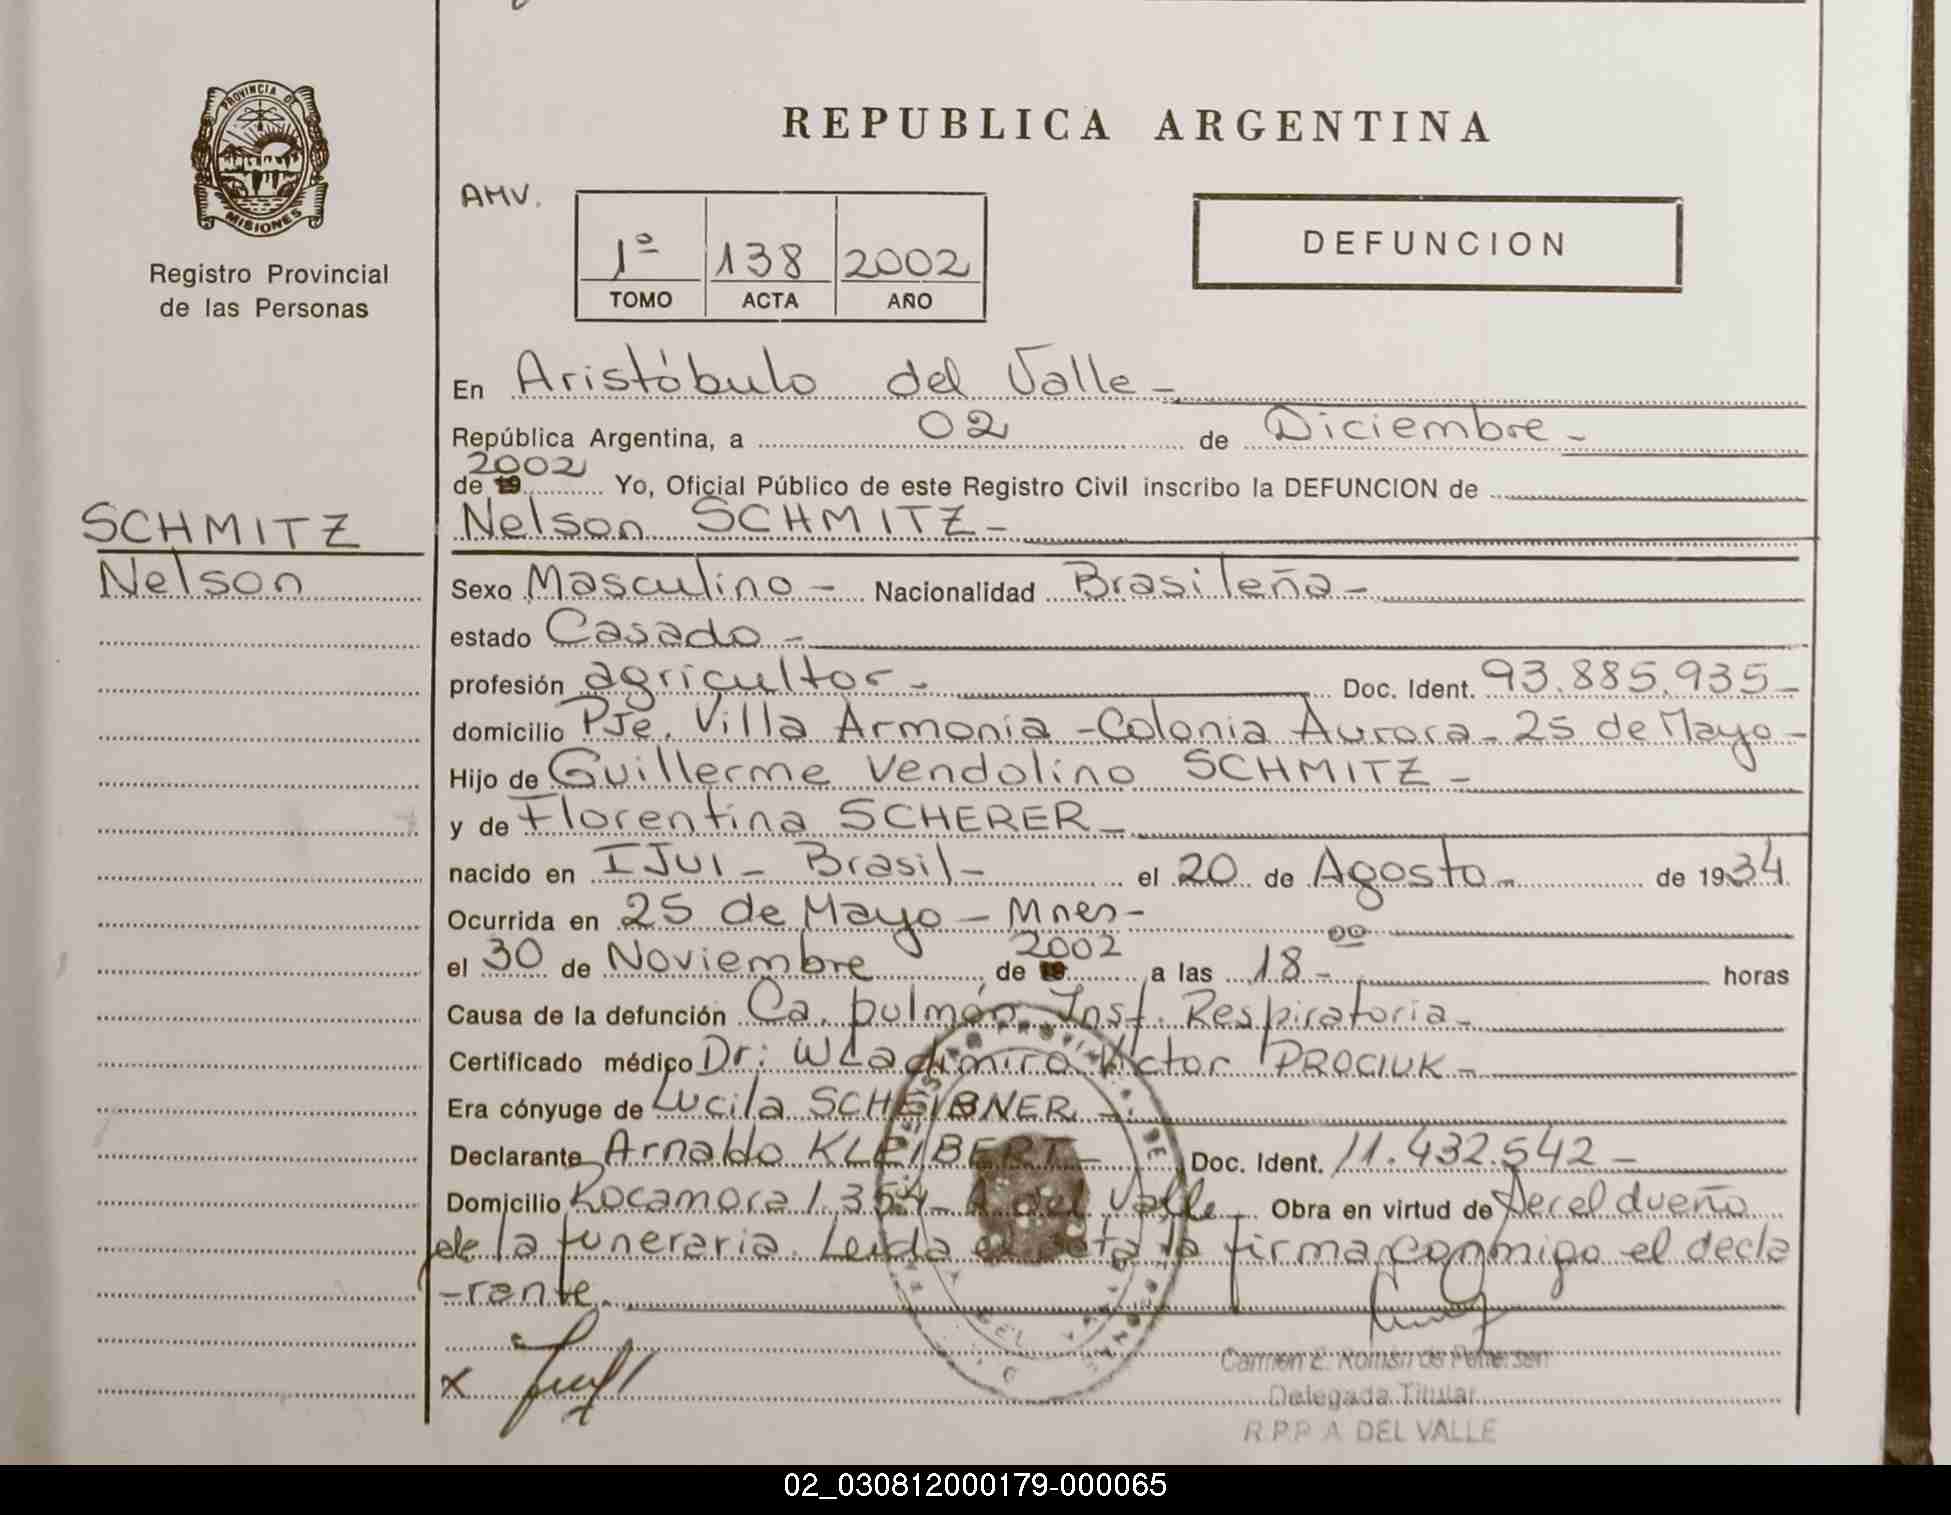 PROVINCIA DE
MISIONES
Registro Provincial
de las Personas
REPUBLICA ARGENTINA
AMV.
1º 138 2002
TOMO ACTA AÑO
DEFUNCION
En Aristóbulo del Valle -
República Argentina, a 02 de Diciembre -
2002
de 19 Yo, Oficial Público de este Registro Civil inscribo la DEFUNCION de
SCHMITZ
Nelson
Nelson SCHMITZ -
Sexo Masculino - Nacionalidad Brasileña -
estado Casado -
profesión agricultor - Doc. Ident. 93.885.935 -
domicilio Pje. Villa Armonia - Colonia Aurora - 25 de Mayo -
Hijo de Guillerme Vendolino SCHMITZ -
y de Florentina SCHERER -
nacido en IJUI - Brasil - el 20 de Agosto - de 1934
Ocurrida en 25 de Mayo - Mnes -
el 30 de Noviembre de 19 2002 a las 18 - 00 horas
Causa de la defunción Ca. pulmón Insf. Respiratoria -
Certificado médico Dr: WLadimiro Victor PROCIUK -
Era cónyuge de Lucila SCHEIBNER -
Declarante Arnaldo KLEIBERT - Doc. Ident. 11.432.542 -
Domicilio Rocamora 1.354 - A. del Valle - Obra en virtud de ser el dueño
de la funeraria. Leída el acta la firma conmigo el decla
-rante.
x
Carmen E. Román de Pettersen
Delegada Titular
R.P.P. A DEL VALLE
02_030812000179-000065